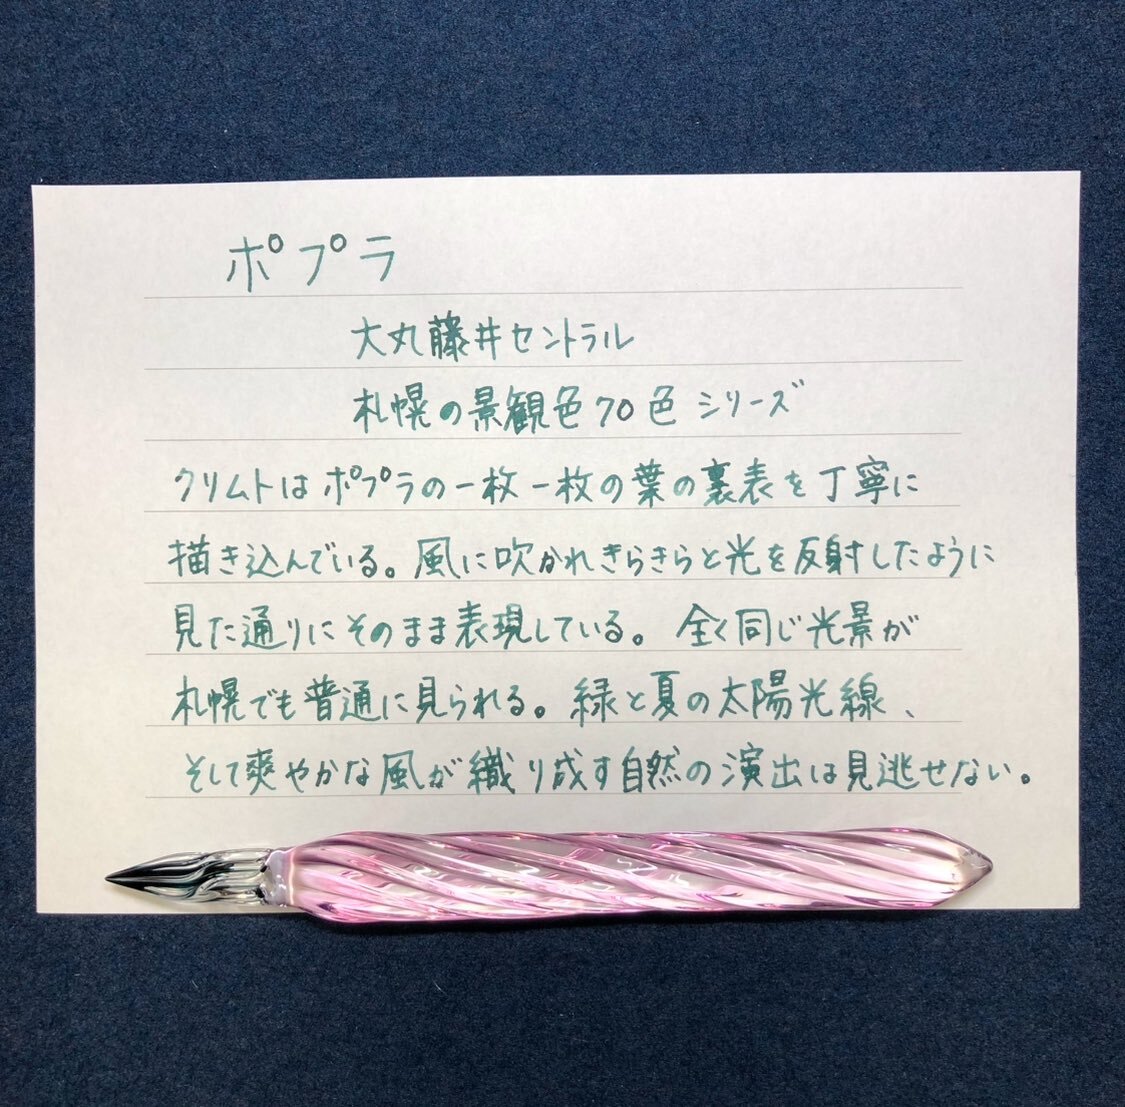 ポプラ
大丸藤井セントラル
札幌の景観色70色シリーズ
クリムトはポプラの一枚一枚の葉の裏表を丁寧に
描き込んでいる。風に吹かれきらきらと光を反射したように
見た通りにそのまま表現している。全く同じ光景が
札幌でも普通に見られる。緑と夏の太陽光線、
そして爽やかな風が織り成す自然の演出は見逃せない。